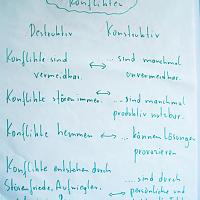 Konflikten
Destruktiv Konstruktiv
Konflikte sind vermeidbar. ↔ ... sind manchmal unvermeidbar.
Konflikte stören immer. ↔ ... sind manchmal produktiv nutzbar.
Konflikte hemmen ↔ ... können Lösungen provozieren
Konflikte entstehen durch ... sind durch
Störenfriede, Aufwiegler. persönliche und